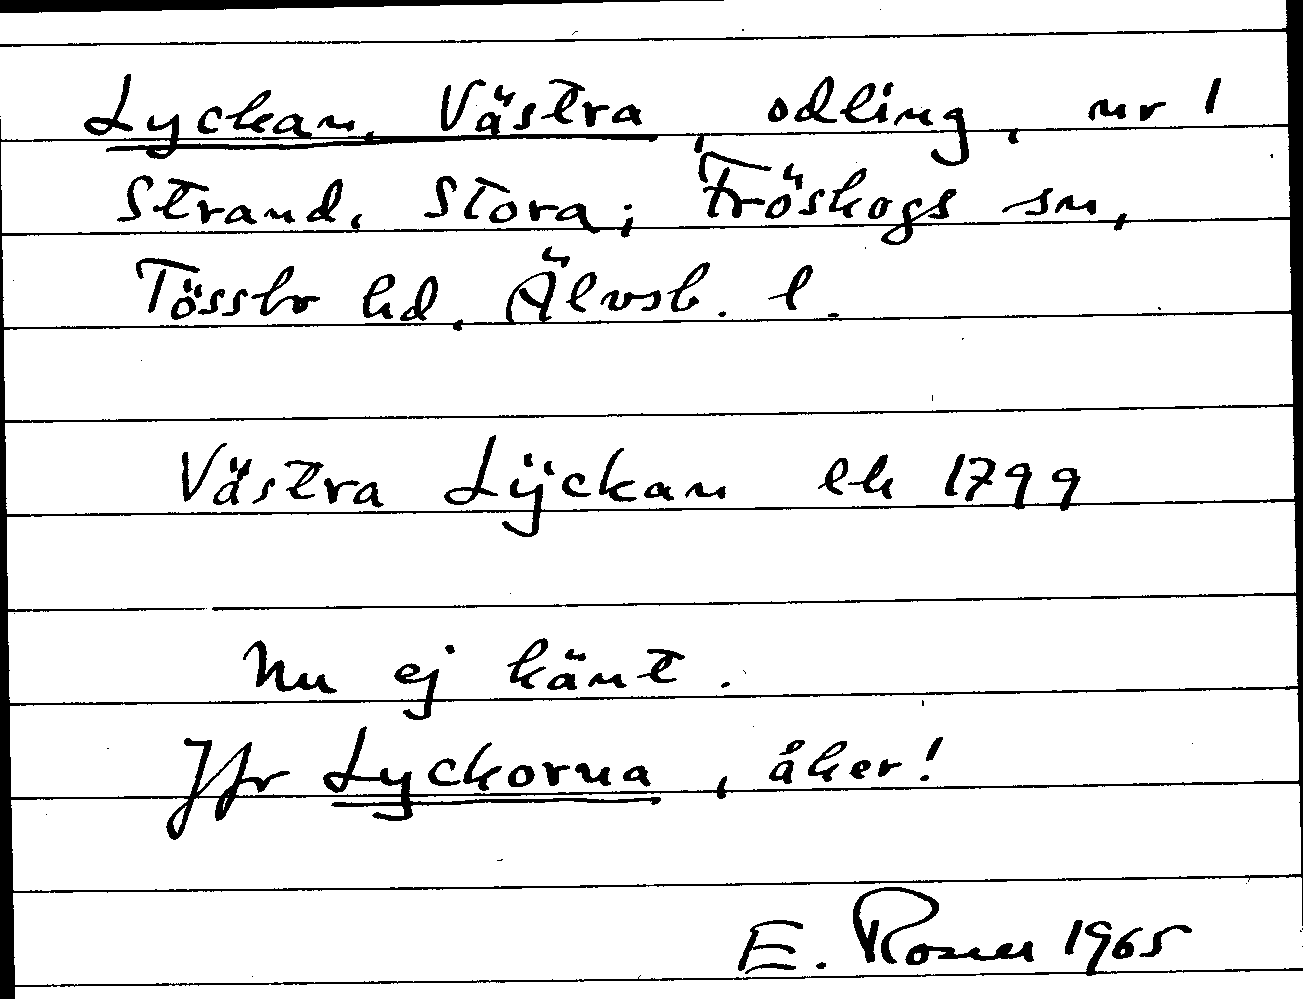 Lyckan, Västra, odling, nr 1
Strand, Stora; Fröskogs sn,
Tössbo hd, Älvsb. l.
Västra Lÿckan lh 1799
Nu ej känt.
Jfr Lyckorna, åker!
E. Rosell 1965